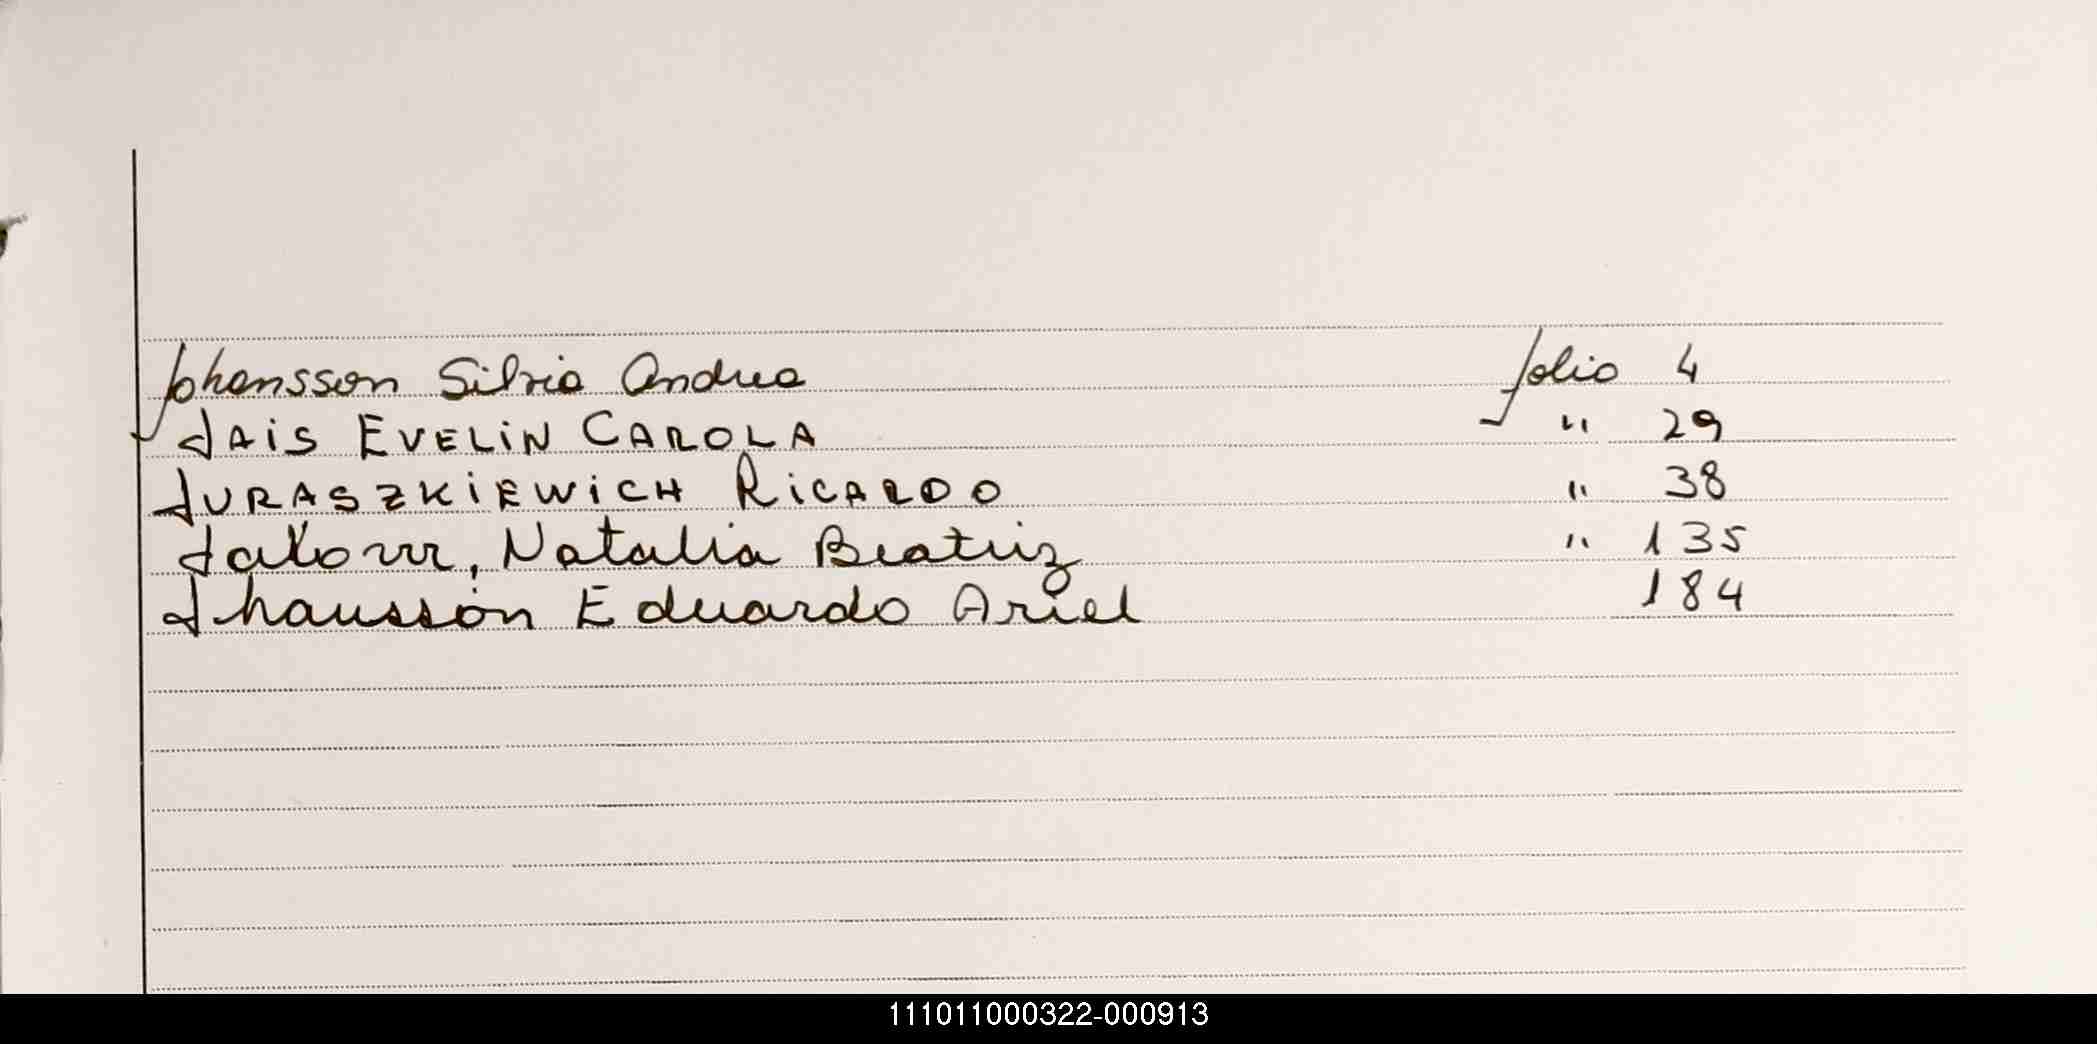 Johansson Silvia Andrea folio 4
JAIS EVELIN CAROLA " 29
JURASZKIEWICH RICARDO " 38
Natalia Beatriz " 135
Jhausson Eduardo Ariel 184
111011000322-000913